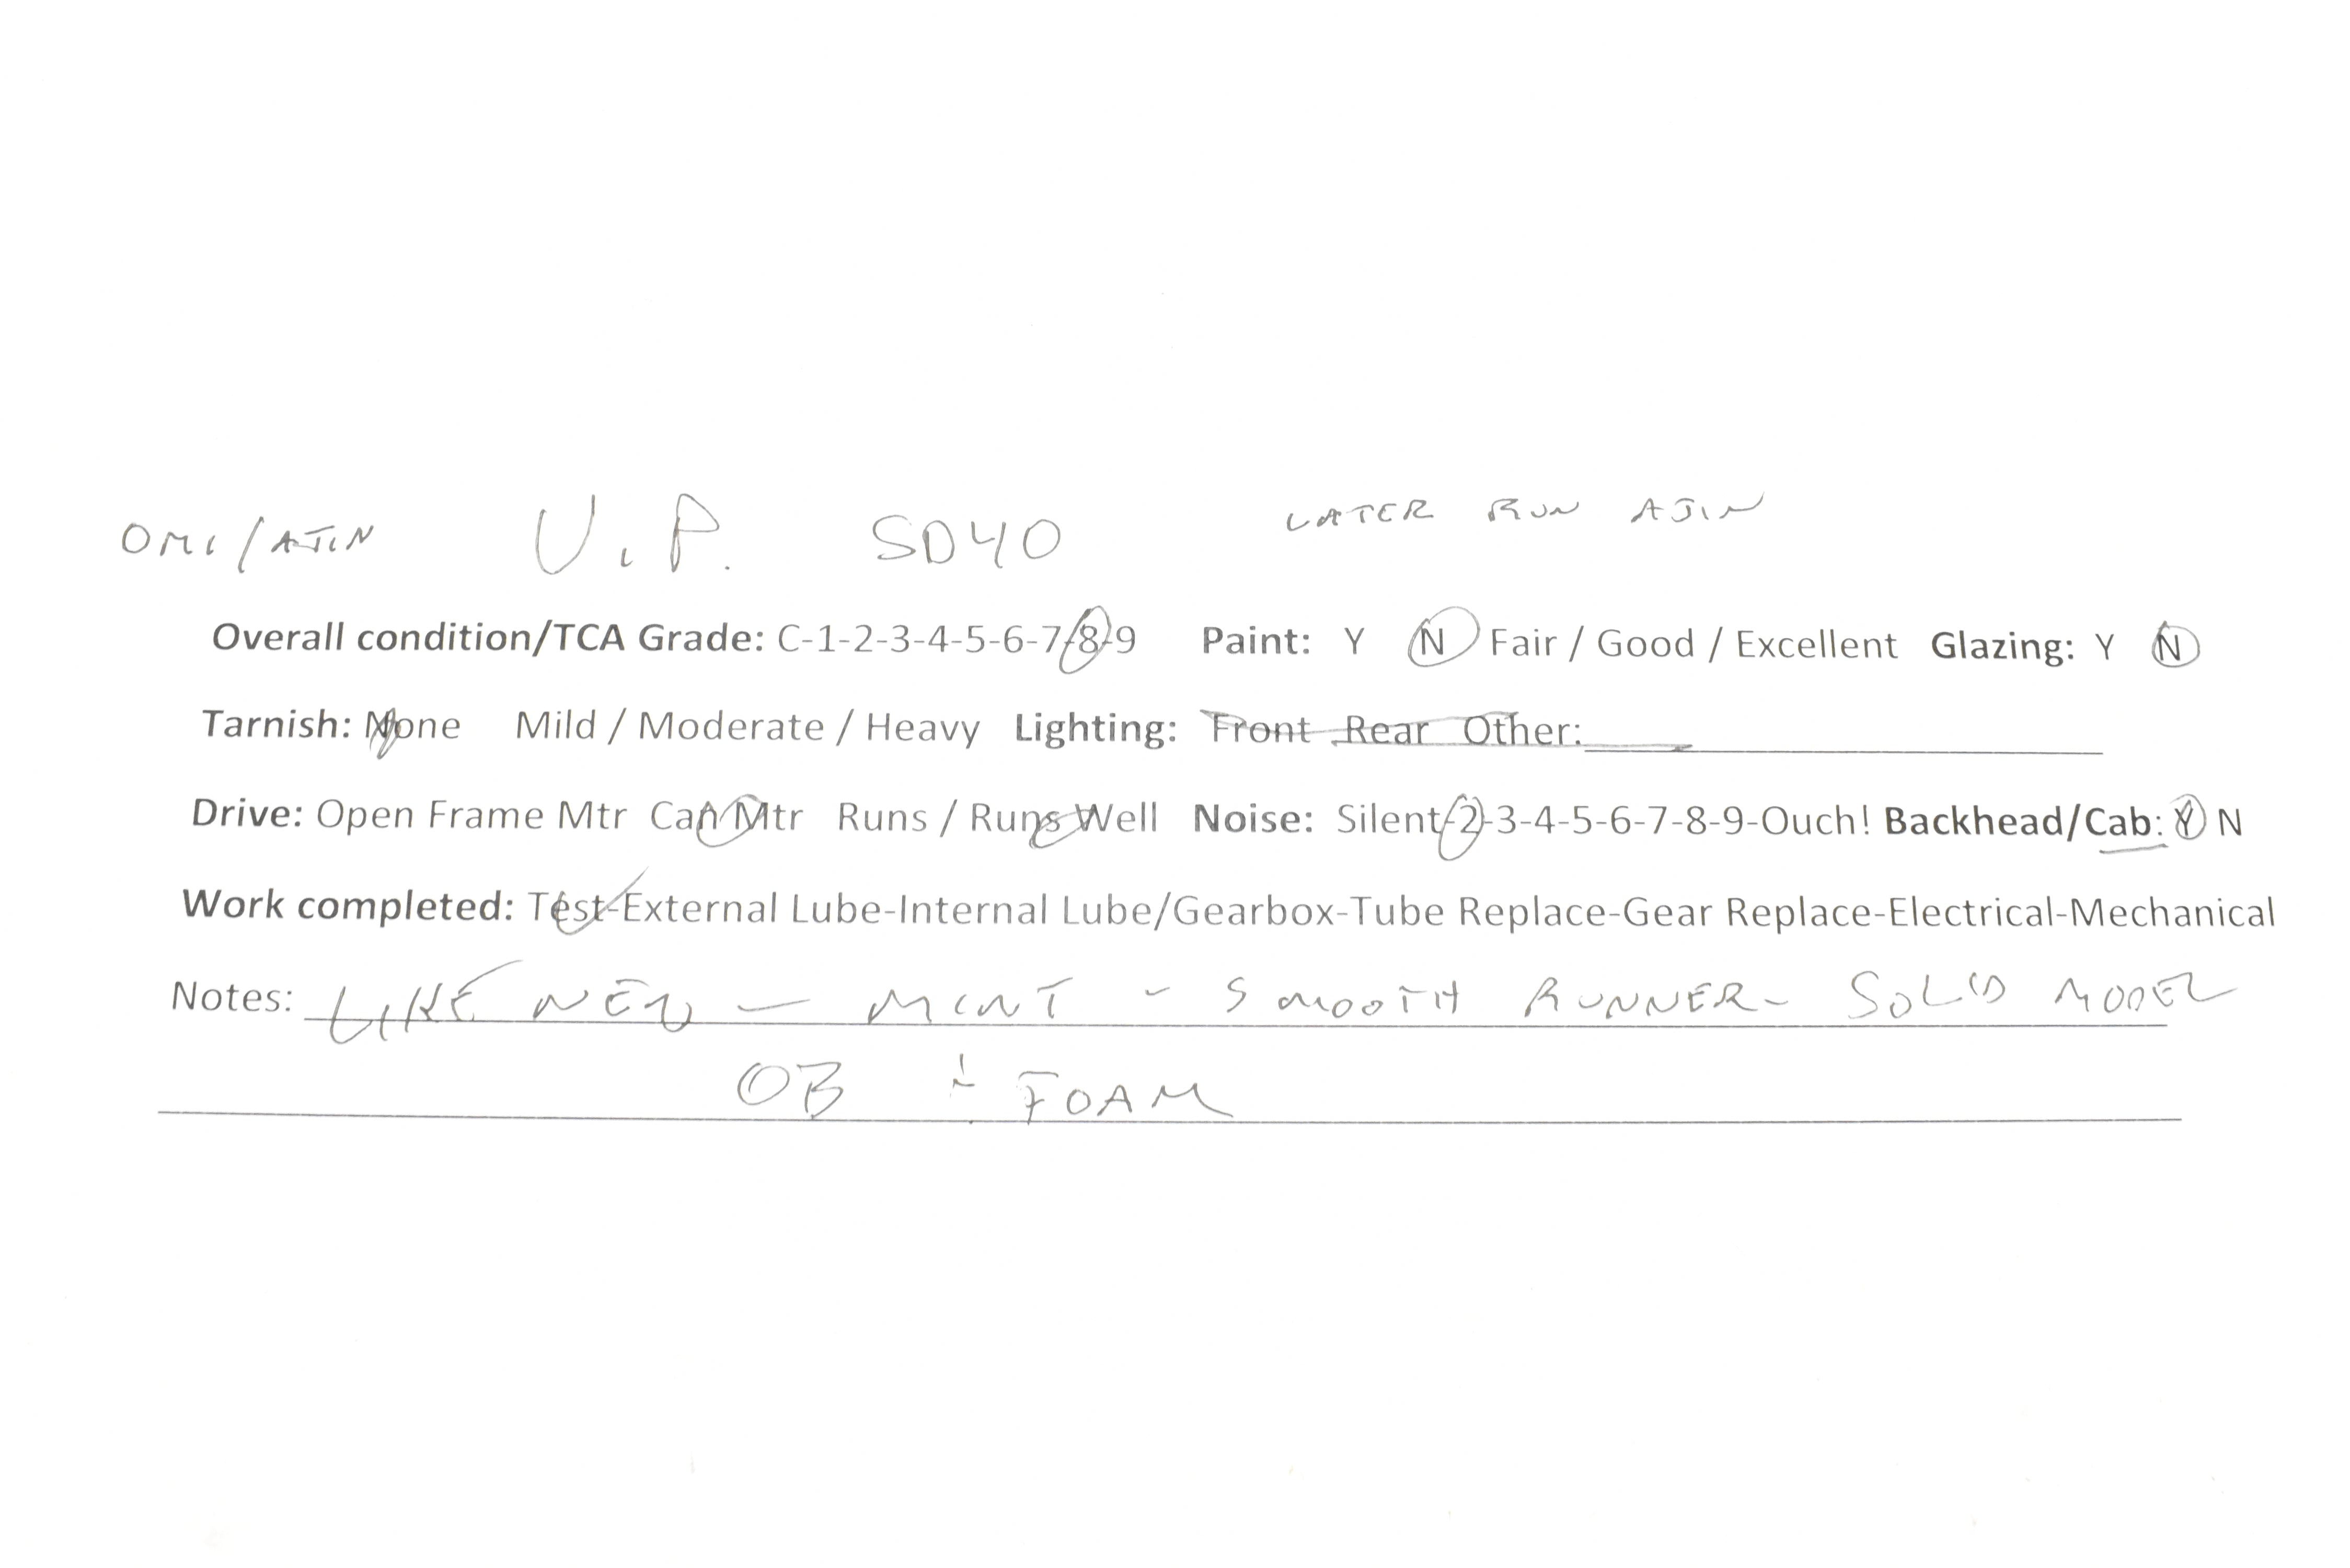 OMI/AJIN U.P. SD40 LATER RUN AJIN
Overall condition/TCA Grade: C-1-2-3-4-5-6-7-8-9 Paint: Y N Fair / Good / Excellent Glazing: Y N
Tarnish: None Mild / Moderate / Heavy Lighting: Front Rear Other:
Drive: Open Frame Mtr Can Mtr Runs / Runs Well Noise: Silent-2-3-4-5-6-7-8-9-Ouch! Backhead/Cab: Y N
Work completed: Test-External Lube-Internal Lube/Gearbox-Tube Replace-Gear Replace-Electrical-Mechanical
Notes: LIKE NEW — MINT - SMOOTH RUNNER - SOLID MODEL
OB + FOAM